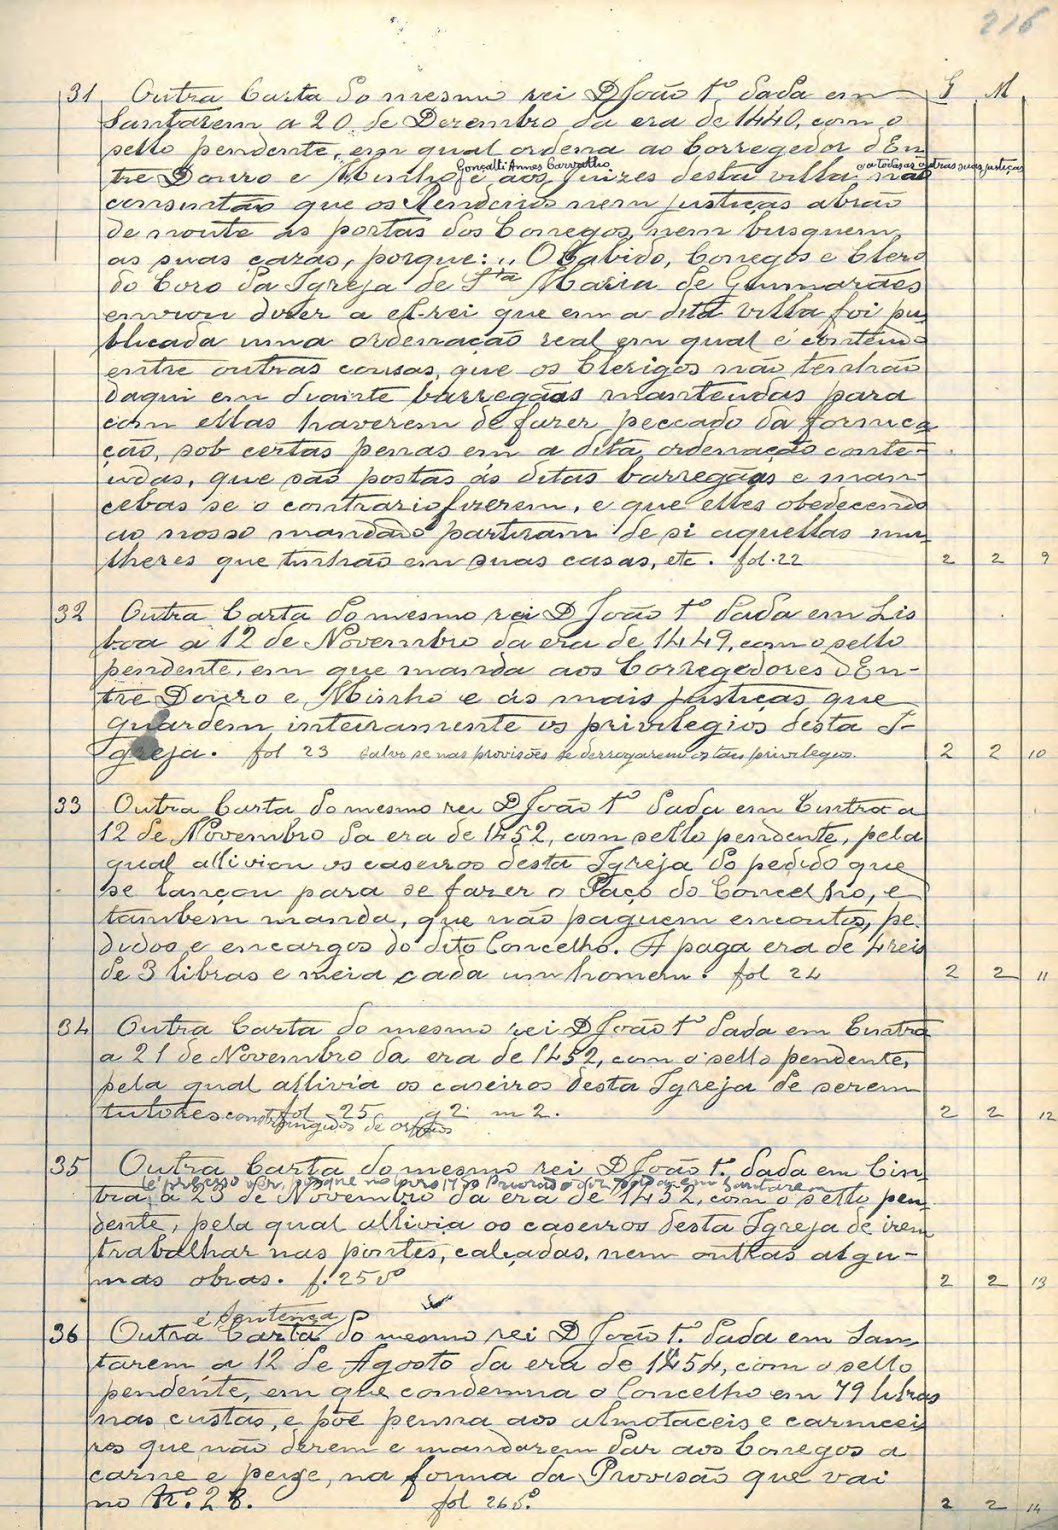 216
G M
31 Outra Carta do mesmo rei D João 1º dada em
Santarem a 20 de Dezembro da era de 1440, com o
sello pendente, em qual ordena ao Corregedor d'En
Gonçalli Annes Carvalho
e a todas as outras suas justiças
tre Douro e Minho e aos juizes desta villa não
consintão que os Rendeiros nem justiças abrão
de noute as portas dos Conegos, nem busquem
as suas cazas, porque: ,, O Cabido, Conegos e Clero
do Coro da Igreja de Sta Maria de Guimarães
enviou dizer a el-rei que em a dita villa foi pu
blicada uma ordenação real em qual é contendo
entre outras cousas, que os Clerigos não tenhão
daqui em diante barregãas manteudas para
com ellas haverem de fazer peccado da fornica
ção, sob certas penas em a dita ordenação conte-
udas, que são postas ás ditas barregãas e man-
cebas se o contrario fizerem, e que elles obedecendo
ao nosso mandado partiram de si aquellas mu
lheres que tinhão em suas casas, etc. fol. 22 2 2 9
32 Outra Carta do mesmo rei D João 1º dada em Lis
boa a 12 de Novembro da era de 1449, com o sello
pendente, em que manda aos Corregedores d'En-
tre Douro e Minho e ás mais justiças que
guardem inteiramente os privilegios desta I-
greja. fol 23 salvo se nas provisões se derrogarem os taes privilegios. 2 2 10
33 Outra Carta do mesmo rei D João 1º dada em Cintra a
12 de Novembro da era de 1452, com sello pendente, pela
qual alliviou os caseiros desta Igreja do pedido que
se lançou para se fazer o Paço do Concelho, e
tambem manda, que não paguem encoutos, pe-
didos e encargos do dito Concelho. A paga era de 4 reis
de 3 libras e meia cada um homem. fol 24 2 2 11
34 Outra Carta do mesmo rei D João 1º dada em Cintra
a 21 de Novembro da era de 1452, com o sello pendente,
pela qual allivia os caseiros desta Igreja de serem
tutores fol 25 g 2. m 2. 2 2 12
constrangidos de orfãos
35 Outra Carta do mesmo rei D João 1º. dada em Cin-
tra a 23 de Novembro da era de 1452, com o sello pen
dente, pela qual allivia os caseiros desta Igreja de irem
trabalhar nas pontes, calçadas, nem outras algu-
mas obras. f. 25 vº 2 2 13
é Sentença
36 Outra Carta do mesmo rei D João 1º. dada em San
tarem a 12 de Agosto da era de 1454, com o sello
pendente, em que condemna o Concelho em 79 libras
nas custas, e põe penna aos almotaceis e carnicei
ros que não derem e mandarem dar aos Conegos a
carne e peixe, na forma da Provisão que vai
no Nº. 28. fol 26 vº. 2 2 14